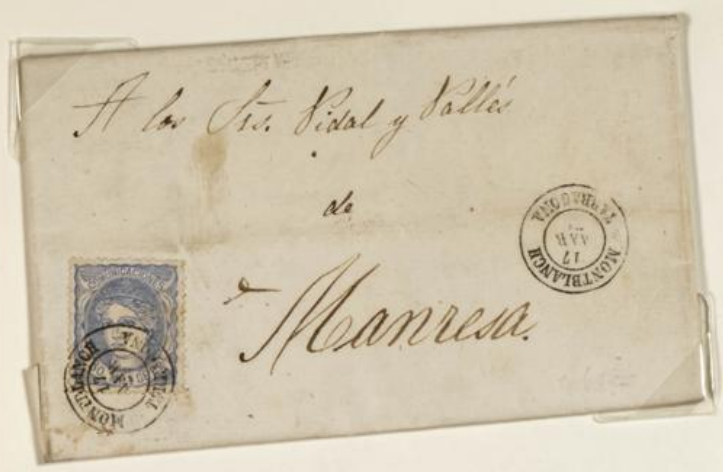 A los Srs. Vidal y Vallés
de
Manresa.
MONTBLANCH
17
TARRAGONA
MONTBLANCH
17